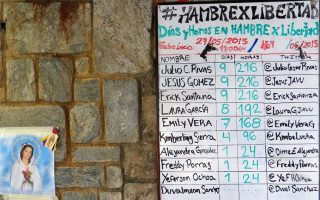 #HAMBREXLIBERTAD
Días y Horas en HAMBRE X Libertad
Fecha Inicio: 23/05/2015 /06/2015
NOMBRE DIAS HORAS TWITTER
JULIO C. RIVAS 9 216 @JulioCesarRivas
JESUS GOMEZ 9 216 @Jesus JAVU
Erick Santana 9 216 @Erick
LAURA GARCÍA 8 192 @Laura JAVU
EMILY VERA 7 168 @EmilyVeraG
Kimberling Sierra 4 96 @KimbaLucha
Alejandra González 1 24
Freddy Porras 1 24 @FreddyPorras
YeFerson Ochoa 1 24
Duvalmean @Dival Sanchez